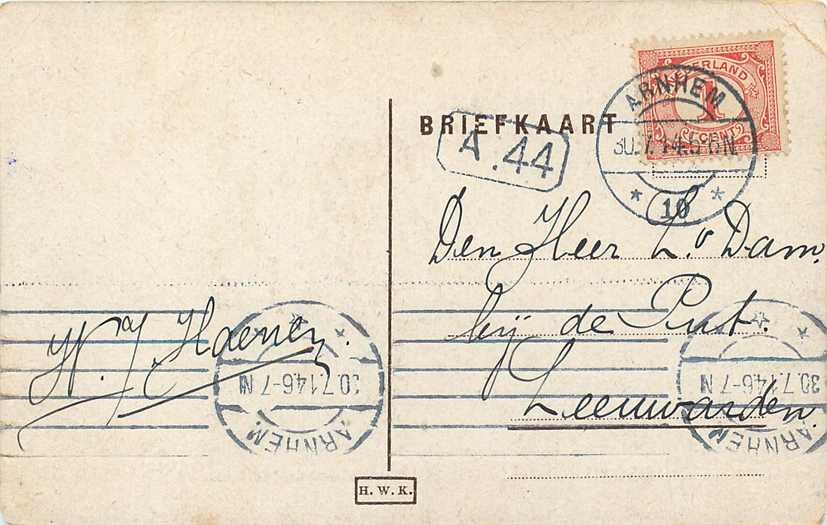 BRIEFKAART
NEDERLAND
1 CENT
ARNHEM
30.7.14.5-6N
* 10 *
A.44
Den Heer L. v Dam.
bij de Put.
Leeuwarden.
30.7.14 6-7 N
ARNHEM
30.7.14 6-7 N
ARNHEM
H. W. K.